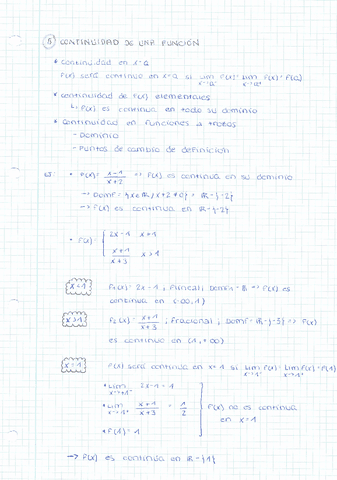 ⑤ CONTINUIDAD DE UNA FUNCIÓN
* Continuidad en x=a
F(x) será continua en x=a si lim x→a⁻ F(x) = lim x→a⁺ F(x) = F(a)
* Continuidad de F(x) elementales
↳ F(x) es continua en todo su dominio
* Continuidad en funciones a trozos
- Dominio
- Puntos de cambio de definición
• F(x) = x-1 / x+2 => F(x) es continua en su dominio
→ DomF = {x∈ℝ / x+2≠0} = ℝ-{-2}
→ F(x) es continua en ℝ-{-2}
• F(x) = { 2x-1
x+1 / x+3 x>1
x<1 F₁(x) = 2x-1 ; Polinomial ; DomF₁=ℝ => F(x) es
continua en (-∞,1)
x>1 F₂(x) = x+1 / x+3 ; Fracional ; DomF=ℝ-{-3} => F(x)
es continua en (1,+∞)
x=1 F(x) será continua en x=1 si lim x→1⁻ F(x) = lim x→1⁺ F(x) = F(1)
• lim 2x-1 = 1
• lim x→1⁺ x+1 / x+3 = 1/2 F(x) no es continua
• F(1) = 1 en x=1
→ F(x) es continua en ℝ-{1}